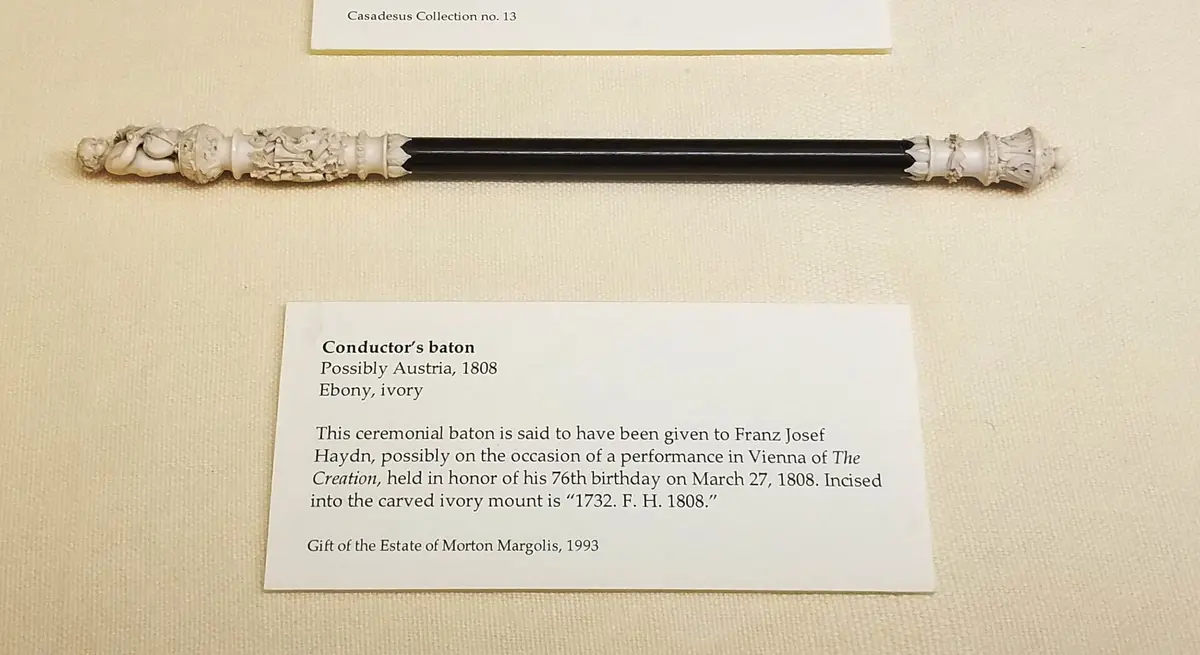 Casadesus Collection no. 13
Conductor's baton
Possibly Austria, 1808
Ebony, ivory
This ceremonial baton is said to have been given to Franz Josef
Haydn, possibly on the occasion of a performance in Vienna of The
Creation, held in honor of his 76th birthday on March 27, 1808. Incised
into the carved ivory mount is “1732. F. H. 1808.”
Gift of the Estate of Morton Margolis, 1993